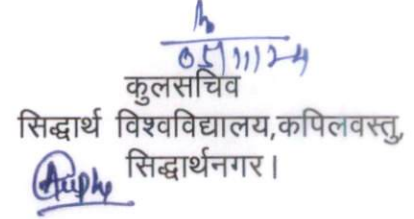 05/11/24
कुलसचिव
सिद्धार्थ विश्वविद्यालय,कपिलवस्तु,
सिद्धार्थनगर।